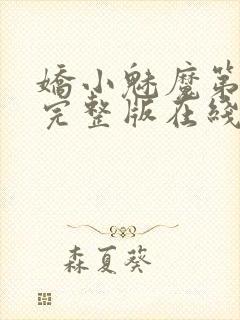 嬌小魅魔第
完整版在綫
森夏葵